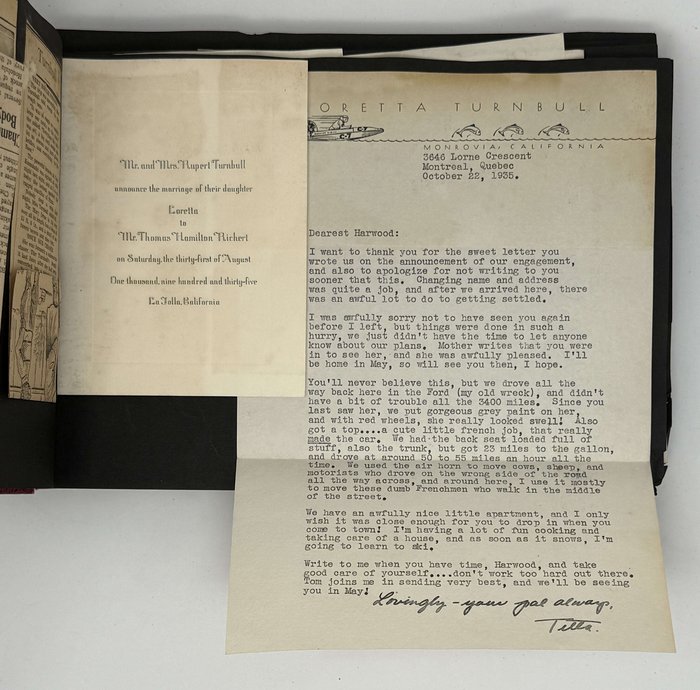 Turnbull
Mr. and Mrs. Rupert Turnbull
announce the marriage of their daughter
Loretta
to
Mr. Thomas Hamilton Richert
on Saturday, the thirty-first of August
One thousand, nine hundred and thirty-five
La Jolla, California
ORETTA TURNBULL
MONROVIA, CALIFORNIA
3646 Lorne Crescent
Montreal, Quebec
October 22, 1935.
Dearest Harwood:
I want to thank you for the sweet letter you
wrote us on the announcement of our engagement,
and also to apologize for not writing to you
sooner that this. Changing name and address
was quite a job, and after we arrived here, there
was an awful lot to do to getting settled.
I was awfully sorry not to have seen you again
before I left, but things were done in such a
hurry, we just didn't have the time to let anyone
know about our plans. Mother writes that you were
in to see her, and she was awfully pleased. I'll
be home in May, so will see you then, I hope.
You'll never believe this, but we drove all the
way back here in the Ford (my old wreck), and didn't
have a bit of trouble all the 3400 miles. Since you
last saw her, we put gorgeous grey paint on her,
and with red wheels, she really looked swell! Also
got a top....a cute little french job, that really
made the car. We had the back seat loaded full of
stuff, also the trunk, but got 23 miles to the gallon,
and drove at around 50 to 55 miles an hour all the
time. We used the air horn to move cows, sheep, and
motorists who drove on the wrong side of the road
all the way across, and around here, I use it mostly
to move these dumb Frenchmen who walk in the middle
of the street.
We have an awfully nice little apartment, and I only
wish it was close enough for you to drop in when you
come to town! I'm having a lot of fun cooking and
taking care of a house, and as soon as it snows, I'm
going to learn to ski.
Write to me when you have time, Harwood, and take
good care of yourself....don't work too hard out there.
Tom joins me in sending very best, and we'll be seeing
you in May!
Lovingly - your pal always,
Tetta.